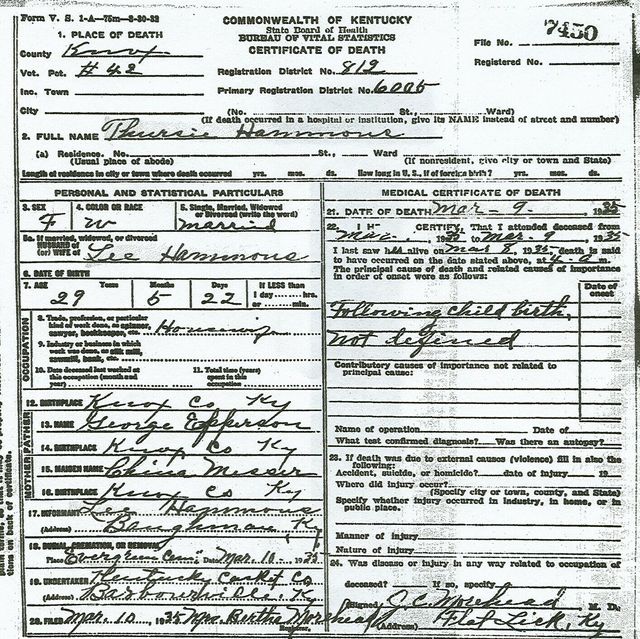 Form V. S. 1-A—75m—8-30-32
COMMONWEALTH OF KENTUCKY
State Board of Health
BUREAU OF VITAL STATISTICS
CERTIFICATE OF DEATH
File No. 7450
Registered No.
1. PLACE OF DEATH
County Knox
Vot. Pct. #42
Inc. Town
City
Registration District No. 812
Primary Registration District No. 6005
(No. St., Ward)
(If death occurred in a hospital or institution, give its NAME instead of street and number)
2. FULL NAME Thursie Hammons
(a) Residence. No. St., Ward
(Usual place of abode) (If nonresident, give city or town and State)
Length of residence in city or town where death occurred yrs. mos. ds. How long in U. S., if of foreign birth? yrs. mos. ds.
PERSONAL AND STATISTICAL PARTICULARS
3. SEX
F
4. COLOR OR RACE
W
5. Single, Married, Widowed
or Divorced (write the word)
married
5a. If married, widowed, or divorced
HUSBAND of
(or) WIFE of Lee Hammons
6. DATE OF BIRTH
7. AGE Years Months Days If LESS than
29 5 22 1 day hrs.
or min.
OCCUPATION
8. Trade, profession, or particular
kind of work done, as spinner,
sawyer, bookkeeper, etc. Housewife
9. Industry or business in which
work was done, as silk mill,
sawmill, bank, etc.
10. Date deceased last worked at
this occupation (month and
year)
11. Total time (years)
spent in this
occupation
12. BIRTHPLACE Knox Co Ky
FATHER
13. NAME George Epperson
14. BIRTHPLACE Knox Co Ky
MOTHER
15. MAIDEN NAME China Messer
16. BIRTHPLACE Knox Co Ky
17. INFORMANT Lee Hammons
(Address) Baughman Ky
18. BURIAL, CREMATION, OR REMOVAL
Place Evergreen Cem Date Mar. 10 1935
19. UNDERTAKER Kentucky Casket Co
(Address) Barbourville Ky
20. FILED Mar. 10, 1935 Mrs. Bertha Morehead
Registrar.
MEDICAL CERTIFICATE OF DEATH
21. DATE OF DEATH Mar - 9 - 1935
22. I CERTIFY, That I attended deceased from
1935 to Mar - 9, 1935
I last saw h alive on Mar 8, 1935 death is said
to have occurred on the date stated above, at 4-a m.
The principal cause of death and related causes of importance
in order of onset were as follows:
Date of
onset
Following child birth,
not defined
Contributory causes of importance not related to
principal cause:
Name of operation Date of
What test confirmed diagnosis? Was there an autopsy?
23. If death was due to external causes (violence) fill in also the
following:
Accident, suicide, or homicide? date of injury 19
Where did injury occur?
(Specify city or town, county, and State)
Specify whether injury occurred in industry, in home, or in
public place.
Manner of injury
Nature of injury
24. Was disease or injury in any way related to occupation of
deceased? If so, specify
(Signed) J. C. Morehead M. D.
(Address) Flat Lick, Ky
tions on back of certificate.